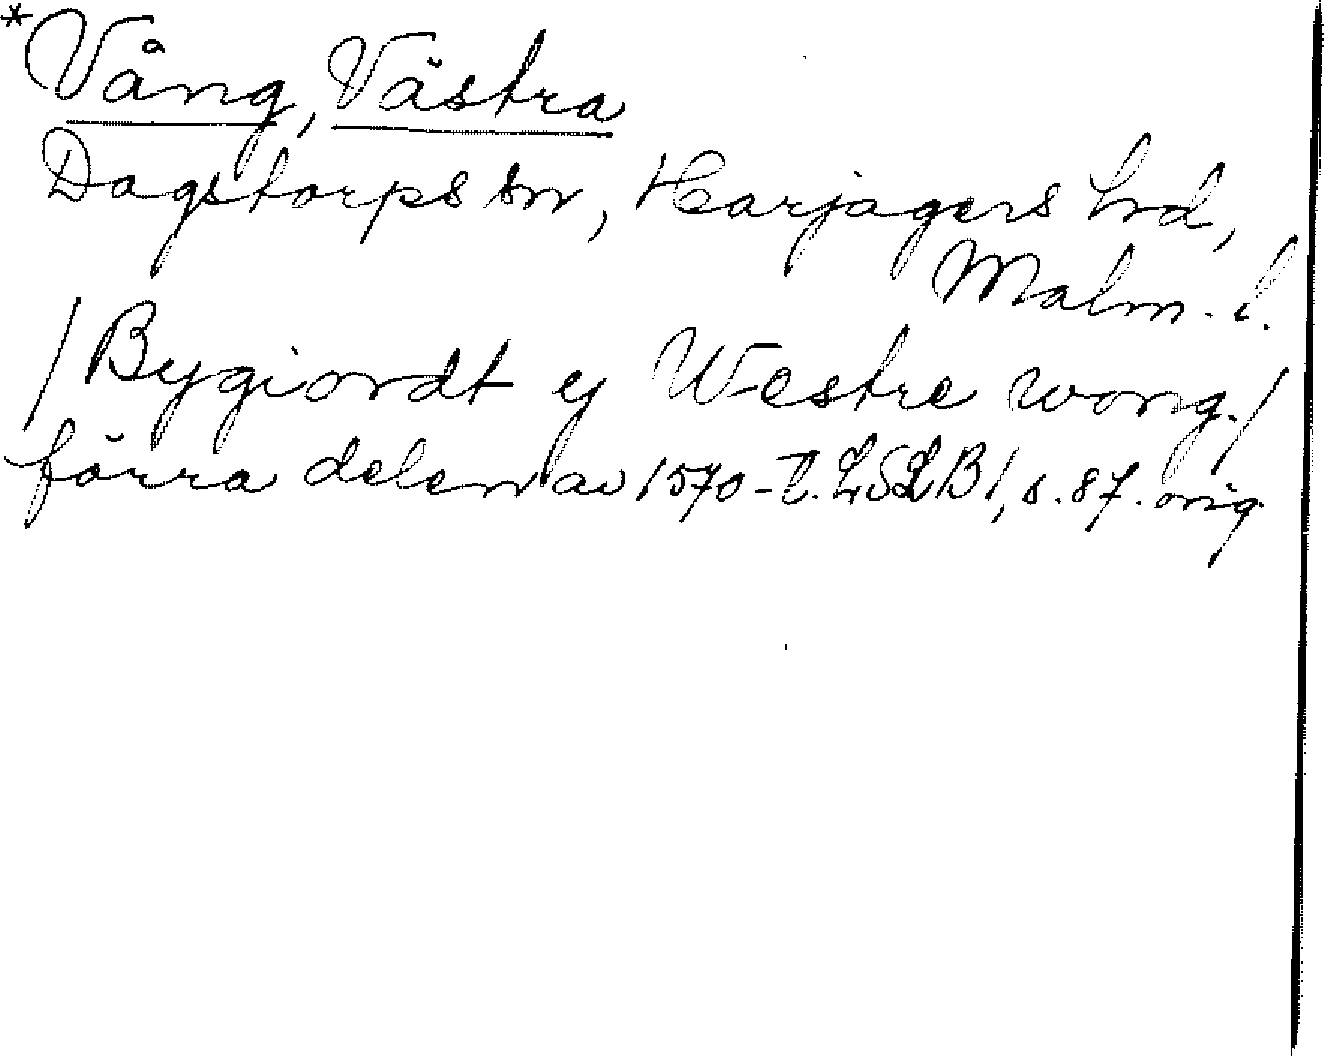 *Vång, Västra
Dagstorps sn, Harjagers hd,
Malm. l.
/Bygiordt ej Westre wong./
förra delen av 1570-t. LSLB1, s. 87. orig.